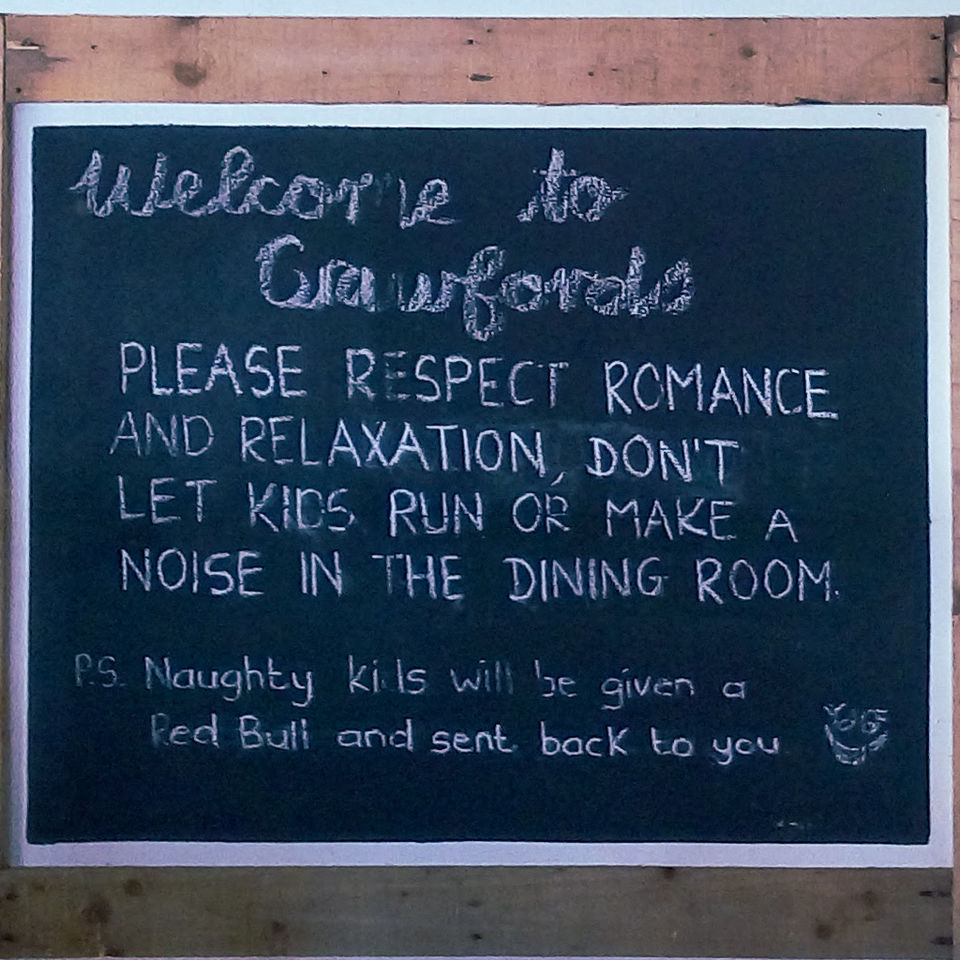 Welcome to
Crawfords
PLEASE RESPECT ROMANCE
AND RELAXATION, DON'T
LET KIDS RUN OR MAKE A
NOISE IN THE DINING ROOM.
P.S. Naughty kids will be given a
Red Bull and sent back to you